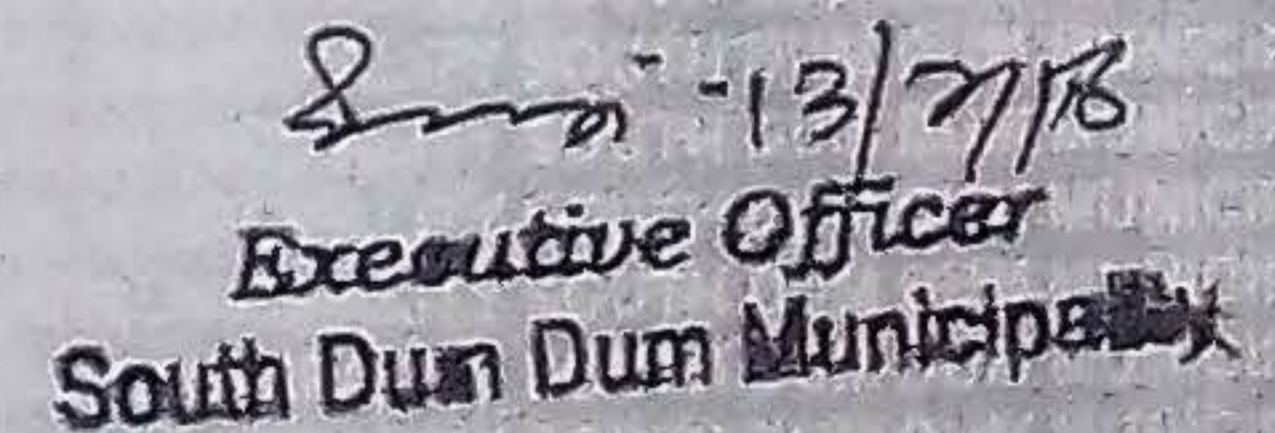 13/7/18
Executive Officer
South Dum Dum Municipality